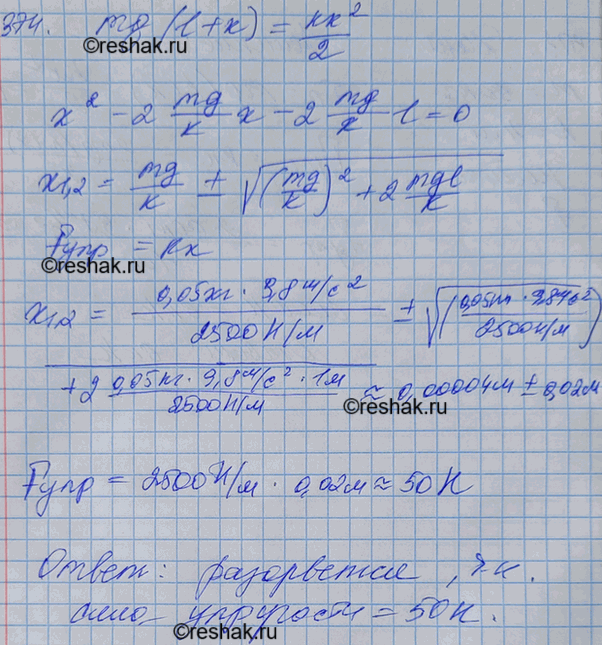 374. mg(l+x) = kx²/2
©reshak.ru
x² - 2 mg/k x - 2 mg/k l = 0
x1,2 = mg/k ± √((mg/k)² + 2 mgl/k)
Fупр = kx
©reshak.ru
x1,2 = 0,05кг · 9,8м/с² / 2500Н/м ± √((0,05кг · 9,8м/с² / 2500Н/м)
+ 2 0,05кг · 9,8м/с² · 1м / 2500Н/м ≈ 0,00004м ± 0,02м
©reshak.ru
Fупр = 2500Н/м · 0,02м ≈ 50Н
Ответ: разорвется, т.к.
сила упругости = 50Н.
©reshak.ru